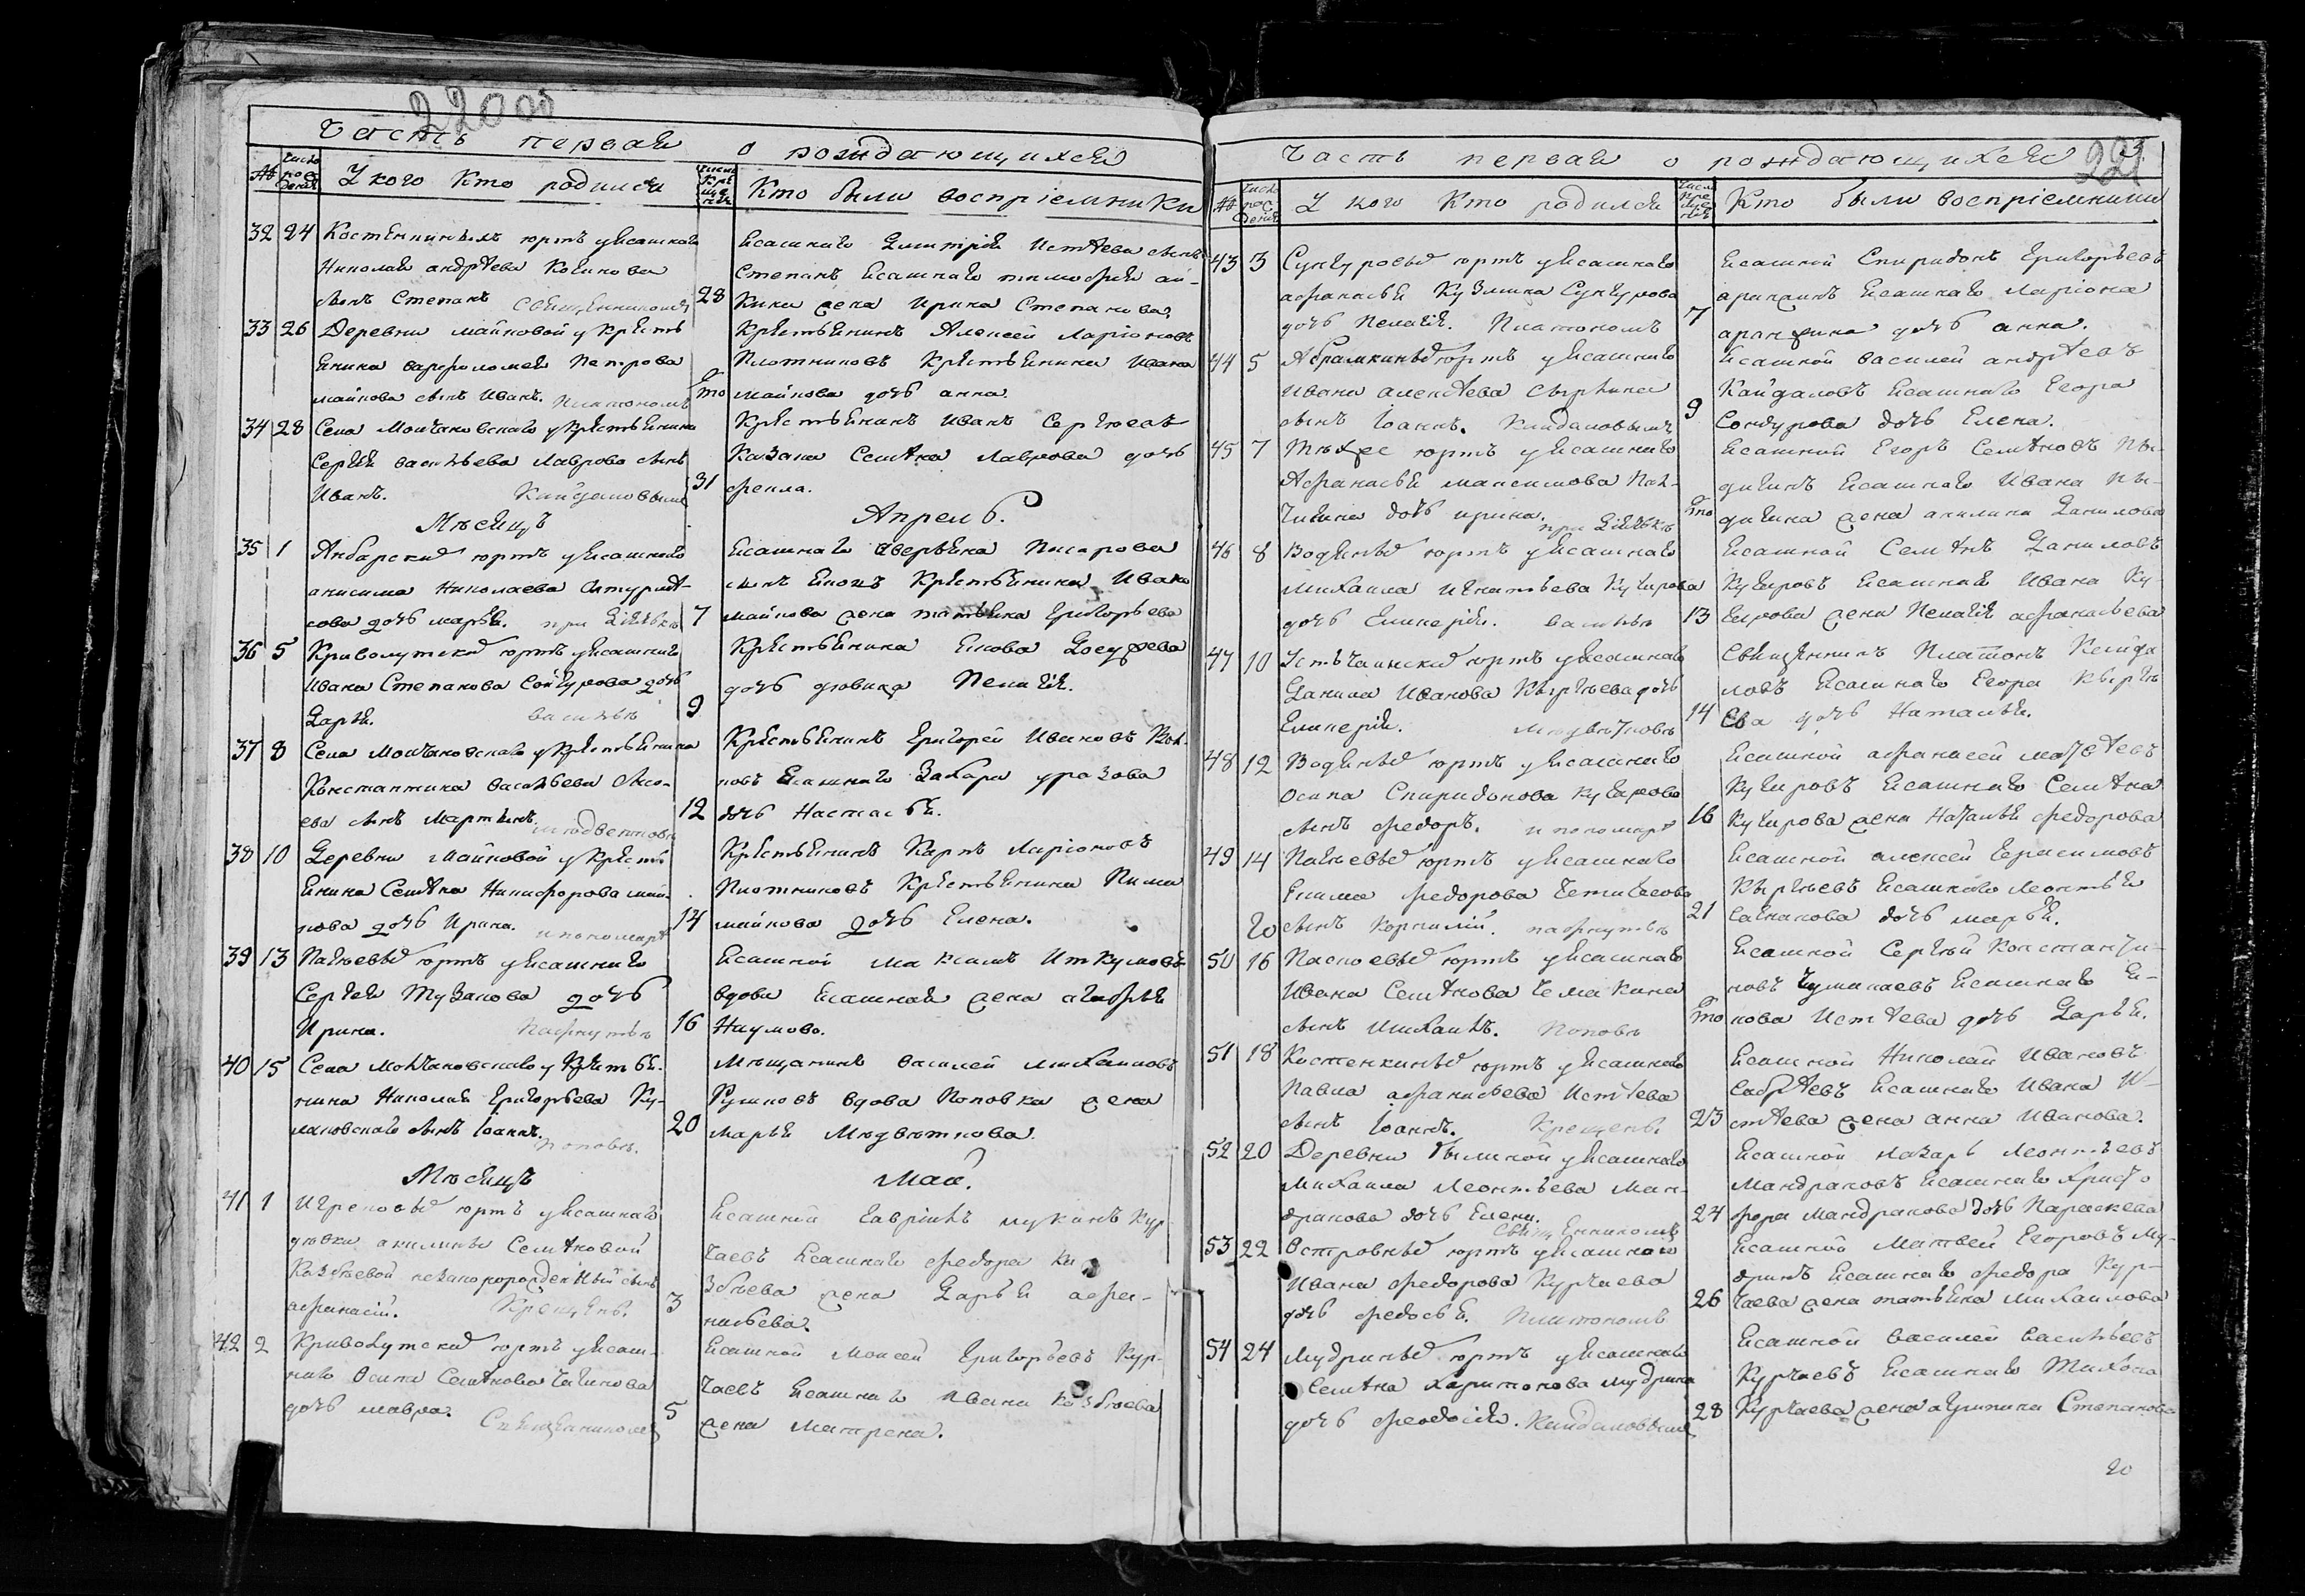 220 об
Часть первая о рождающихся
№ Число рождения У кого кто родился Число крещения Кто были восприемники
32 24 Костенкиныхъ юртъ у ясашнаго
Николая андрѣева
сынъ Степанъ Священникомъ
28
ясашнаго Дмитрія Истѣева сынъ
Степанъ, ясашнаго тимофея ай-
кина жена Ирина Степанова.
33 26 Деревни майковой у Крестья
янина варфоломея Петрова
майкова сынъ Иванъ. Платономъ
то
Крестьянинъ Алексей Ларіоновъ
Плотниковъ Крестьянина Ивана
майкова дочь анна.
34 28 Села Молчановскаго у Крестьянина
Сергѣя васильева Лаврова сынъ
Иванъ. Кайдаловымъ
31
Крестьянинъ Иванъ Сергѣевъ
Казака Семѣна Лаврова дочь
фекла.
Мѣсяцъ Апрель.
35 1 Анбарскихъ юртъ у ясашнаго
анисима Николаева
сова дочь марья. при Дьячьке
7
ясашнаго аверьяна Писарева
сынъ Крестьянина Ивана
майкова жена татьяна Григорьева
36 5 Криволуцкихъ юртъ у ясашнаго
Ивана Степанова Сонгурова дочь
Дарья. васильѣ
9
Крестьянина Якова
дочь девица Пелагія.
37 8 Села Молчановскаго у Крестьянина
Константина васильева Лисо-
ева сынъ Мартынъ.
12
Крестьянинъ Григорей Ивановъ Вол-
ковъ ясашнаго Захара уразова
дочь Настасья.
38 10 Деревни Майковой у Крестья
янина Семѣна Никифорова май-
кова дочь Ирина. и пономарѣ
14
Крестьянинъ Карпъ Ларіоновъ
Плотниковъ Крестьянина Пима
майкова дочь Елена.
39 13 Пагѣевыхъ юртъ у ясашнаго
Сергѣя Тузакова дочь
Ирина. Пафнутьѣ
16
Ясашной максимъ Иткумовъ
вдова ясашная жена агафья
Наумова.
40 15 Села Молчановскаго у Крестья-
нина Николая Григорьева Ку-
лаковскаго сынъ Іоаннъ. Поповѣ.
20
Мѣщанинъ василей михаиловъ
Рушковъ вдова Поповка жена
марья
Мѣсяцъ Май.
41 1 Игрековыхъ юртъ у ясашнаго
девки акилины Семѣновой
Казбѣевой незаконорожденный сынъ
афанасій. Крещены.
3
Ясашной гавріилъ лукинъ Кур-
чаевъ ясашнаго федора Ка
збѣева жена Дарья афа-
насьева.
42 2 Криволутскихъ юртъ у ясаш-
наго Осипа Семѣнова Чагинова
дочь мавра. Священникомъ
5
Ясашной Моисей Григорьевъ Кур-
чаевъ ясашнаго Ивана Казбѣева
жена Матрена.
221
Часть первая о рождающихся
№ Число рождения У кого кто родился Число крещения Кто были восприемники
43 3 Сунгуровыхъ юртъ у ясашнаго
афанасья Кузмина Сунгурова
дочь Пелагія. Платономъ
7
Ясашной Спиридонъ Григорьевъ
ясашнаго Ларіона
дочь анна.
44 5 Абрамкиныхъ юртъ у ясашнаго
Ивана алексѣева Сыркина
сынъ Іоаннъ. Кайдаловымъ
9
Ясашной василей андрѣевъ
Кайдаловъ ясашнаго Егора
Сонгурова дочь Елена.
45 7 юртъ у ясашнаго
Афанасья максимова
дочь ирина. при Дьячькѣ
то
Ясашной Егоръ Семѣновъ Пы-
ясашнаго Ивана Пы-
жена акилина Данилова
46 8 Водяныхъ юртъ у ясашнаго
михаила игнатьева Кугирова
дочь Гликерія. васильѣ
13
Ясашной Семѣнъ Даниловъ
Кугировъ ясашнаго Ивана Ку-
гирова жена Пелагія афанасьева
47 10 Усть чаинскихъ юртъ у ясашнаго
Данила Иванова Кыргѣева дочь
Гликерія.
14
Священникъ Платонъ Кайда
ловъ ясашнаго Егора Кыргѣ
ева дочь Наталья.
48 12 Водяныхъ юртъ у ясашнаго
осипа Спиридонова Кугирова
сынъ федоръ. и пономарѣ
16
Ясашной афанасей матѣевъ
Кугировъ ясашнаго Семѣна
Кугирова жена Наталья федорова
49 14 Пагѣевыхъ юртъ у ясашнаго
Екима федорова
20 сынъ Корнилій. пафнутьѣ
21
Ясашной алексей герасимовъ
Кыргѣевъ ясашнаго Леонтья
дочь марья.
50 16 Паскоевыхъ юртъ у ясашнаго
Ивана Семѣнова Чемакина
сынъ михаилъ. Поповѣ
то
Ясашной Сергѣй Константи-
новъ ясашнаго Я-
кова Истѣева дочь Дарья.
51 18 Костенкиныхъ юртъ у ясашнаго
Павла афанасьева Истѣева
сынъ Іоаннъ. Крещены.
23
Ясашной Николай Ивановъ
ясашнаго Ивана И-
стѣева жена анна Иванова.
52 20 Деревни у ясашнаго
михаила Леонтьева Ман-
дракова дочь Елена. Священникомъ
24
Ясашной Назаръ Леонтьевъ
Мандраковъ ясашнаго Христо
фора Мандракова дочь Параскева
53 22 Островныхъ юртъ у ясашнаго
Ивана федорова Курчаева
дочь федосья. Платономъ
26
Ясашной Матвей Егоровъ Му-
дринъ ясашнаго федора Кур-
чаева жена татьяна михаилова
54 24 Мудриныхъ юртъ у ясашнаго
Семѣна харитонова мудрина
дочь феодосія. Кайдаловымъ
28
Ясашной василей васильевъ
Курчаевъ ясашнаго Тихона
Курчаева жена агрипина Степанова
20